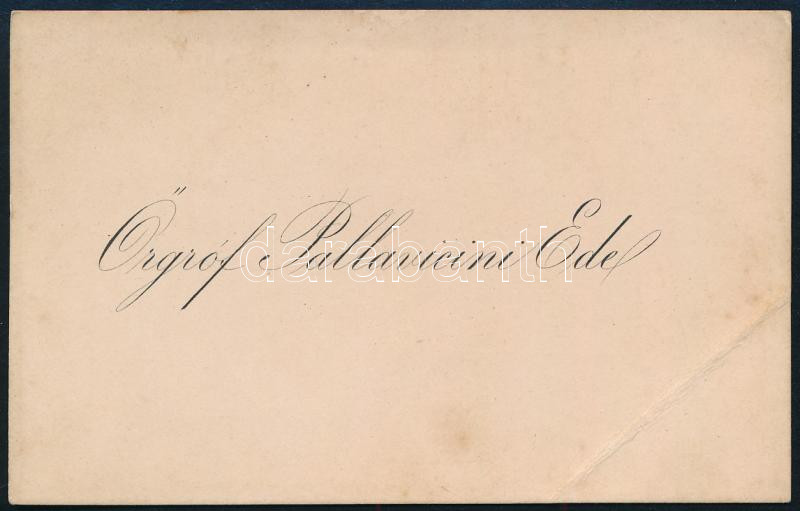 Őrgróf Pallavicini Ede
darabanth